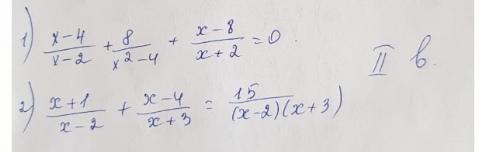 1) (x-4)/(x-2) + 8/(x²-4) + (x-8)/(x+2) = 0.
II в.
2) (x+1)/(x-2) + (x-4)/(x+3) = 15/((x-2)(x+3))